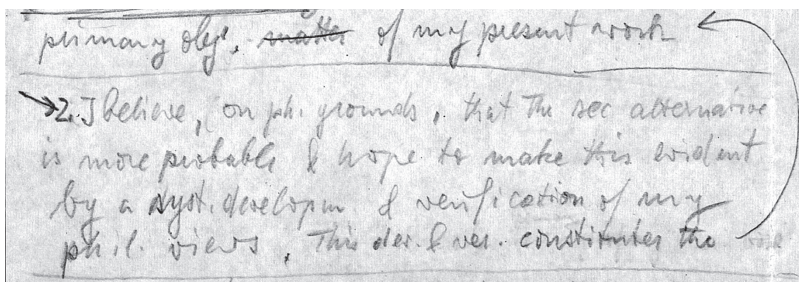 primary obj. matter of my present work
2. I believe, on ph. grounds, that the sec alternative
is more probable & hope to make this evident
by a syst. developm. & verification of my
phil. views. This dev. & ver. constitutes the